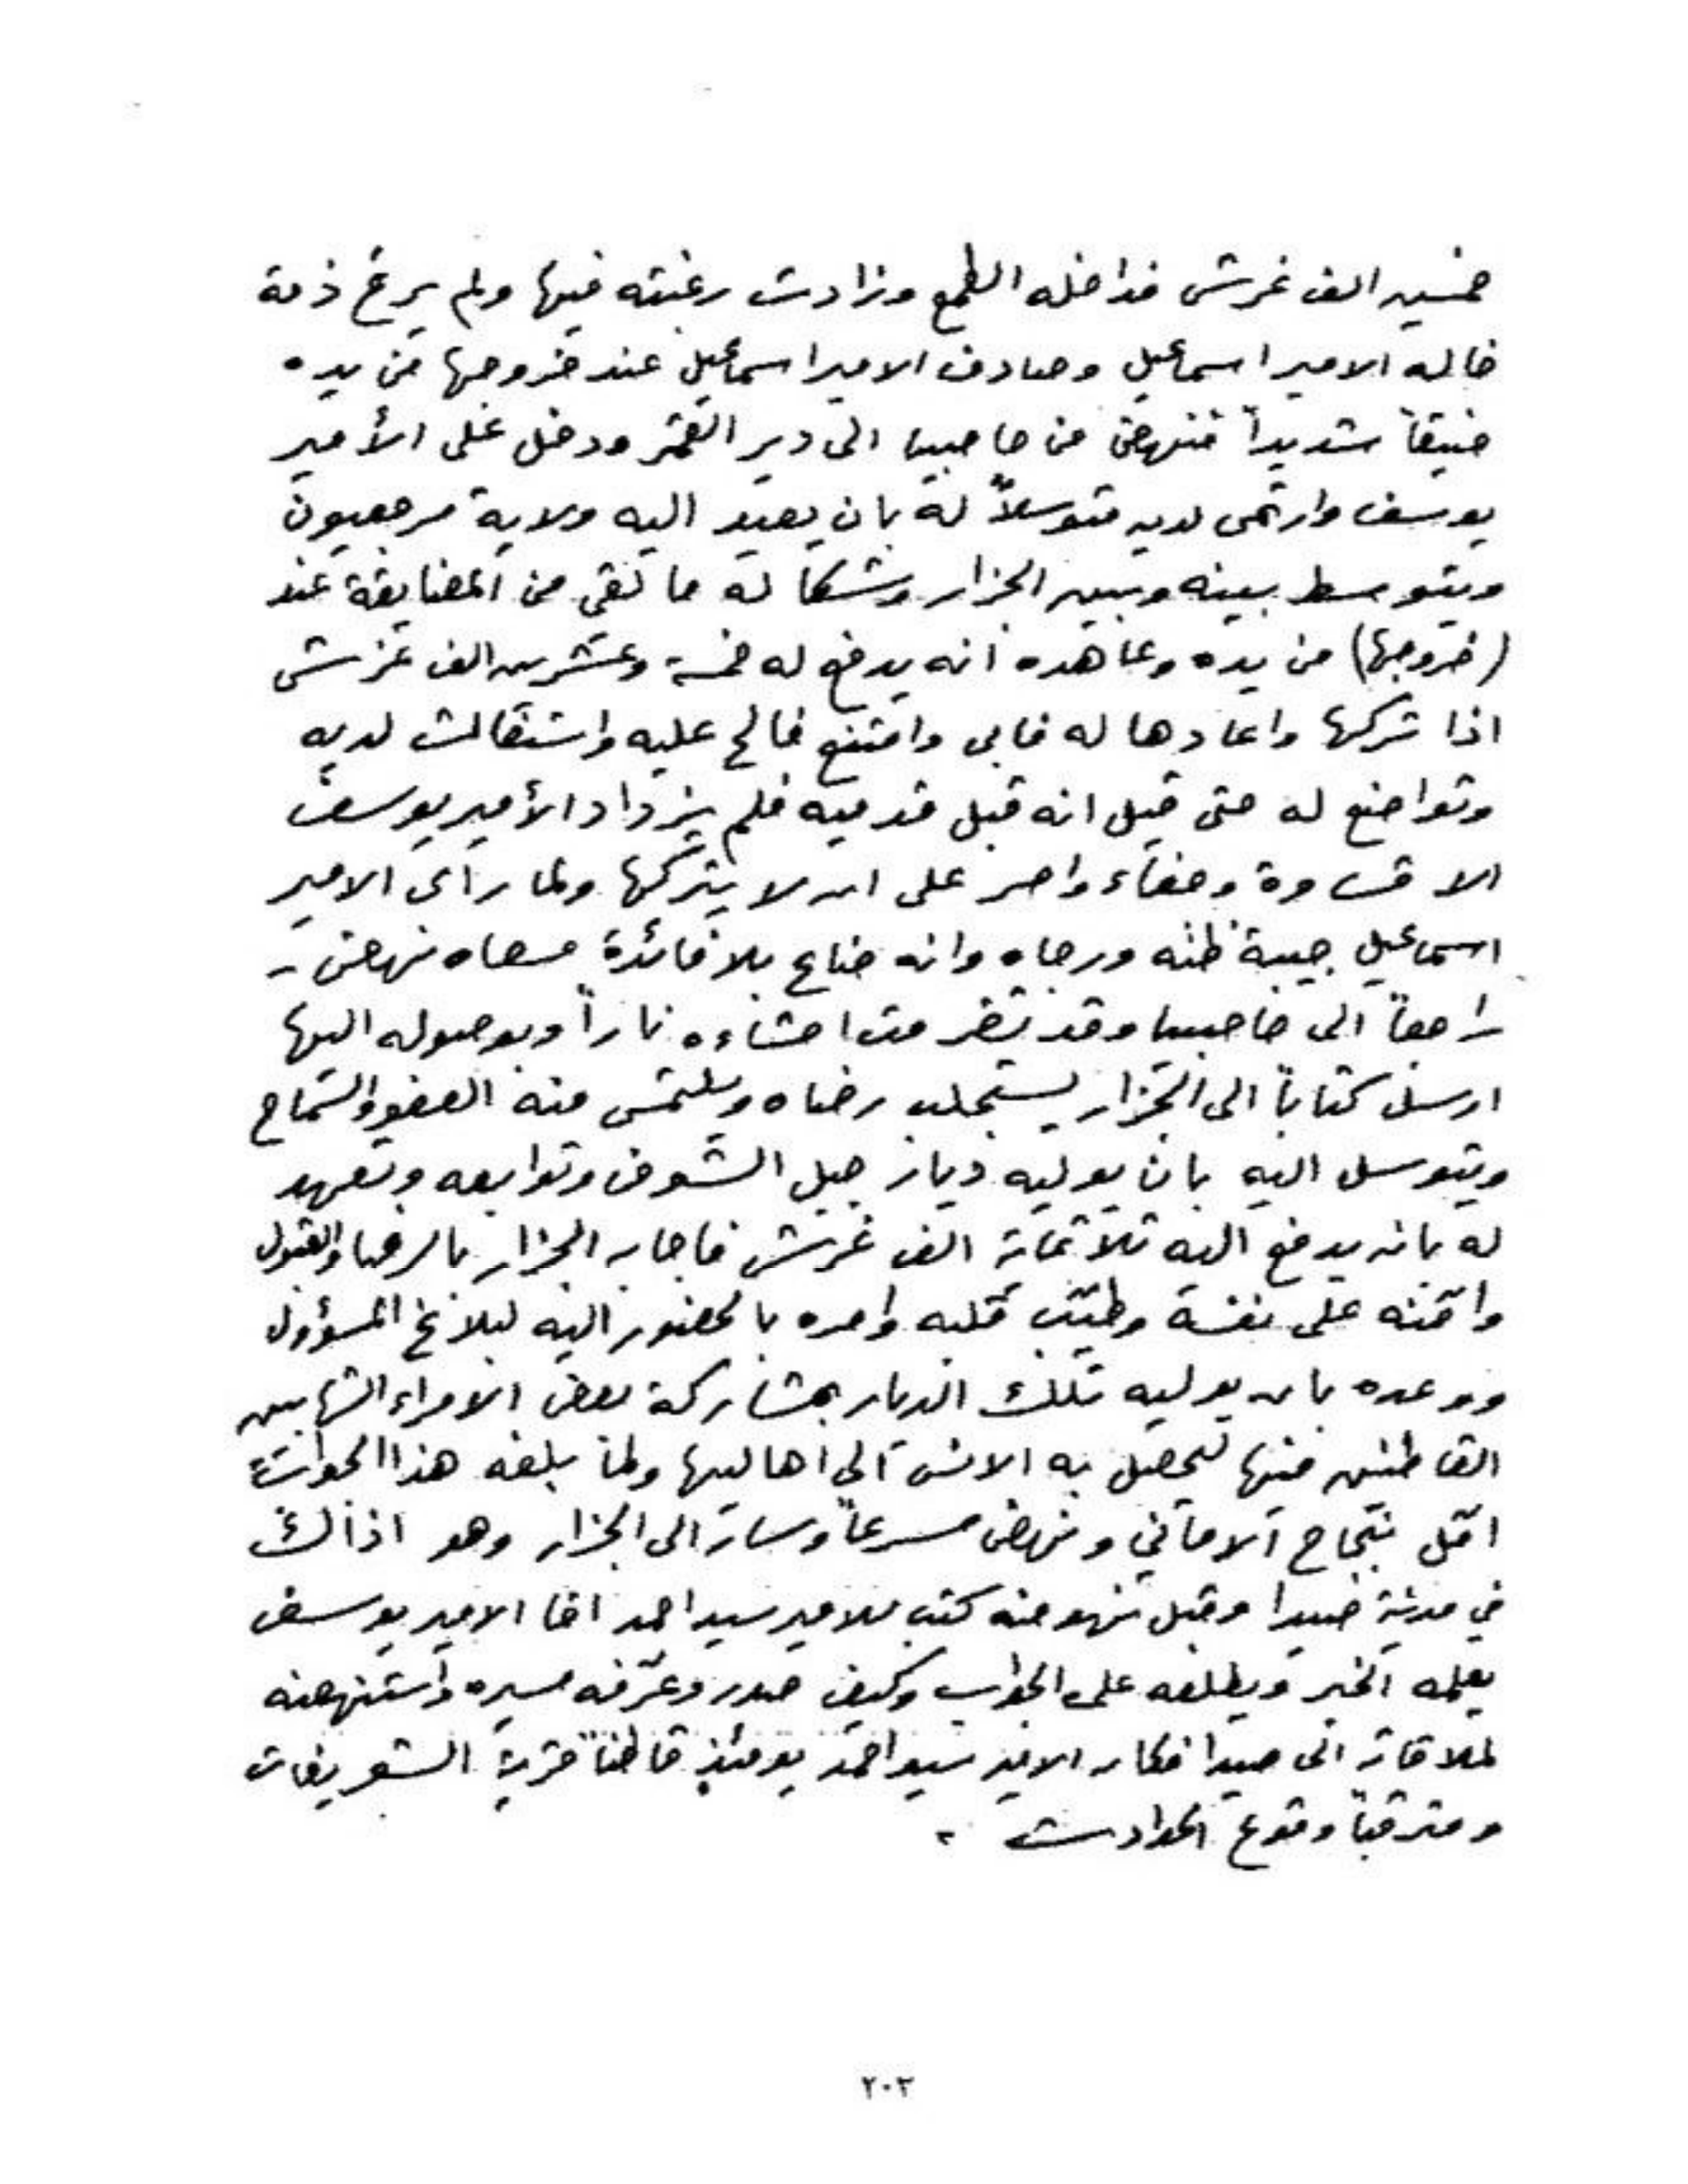 خمسين الف غرش فداخله الطمع وزادت رغبته فيها ولم يرع ذمة
خاله الامير اسماعيل وصادف الامير اسماعيل عند خروجها من يده
ضيقاً شديداً فنهض من حاصبيا الى دير القمر ودخل على الأمير
يوسف وارتمى لديه متوسلاً له بان يعيد اليه ولاية مرجعيون
ويتوسط بينه وبين الجزار وشكا له ما لقي من المضايقة عند
(خروجها) من يده وعاهده انه يدفع له خمسة وعشرين الف غرش
اذا تركها واعادها له فابى وامتنع فالح عليه واستقالت لديه
وتواضع له حتى قيل انه قبل قدميه فلم يزداد الأمير يوسف
الا قساوة وجفاء واصر على ان لا يتركها ولما رأى الامير
اسماعيل خيبة ظنه ورجاه وانه ضاع بلا فائدة مسعاه نهض
راجعاً الى حاصبيا وقد تضرمت احشاءه ناراً وبوصوله اليها
ارسل كتاباً الى الجزار يستجلب رضاه ويلتمس منه العفو والسماح
ويتوسل اليه بان يوليه ديار جبل الشوف وتوابعه وتعهد
له بانه يدفع اليه ثلاثماية الف غرش فاجابه الجزار بالرضا والقبول
وامّنه على نفسه وطيّب قلبه وامره بالحضور اليه لبلاغ المسؤول
ووعده بان يوليه تلك الديار بمشاركة بعض الامراء الشهابيين
القاطنين فيها ليحصل به الانس الى اهاليها ولما بلغه هذا الجواب
امّل بنجاح الاماني ونهض مسرعاً وسار الى الجزار وهو اذ ذاك
في مدينة صيدا وقبل نهوضه كتب للامير سيد احمد اخا الامير يوسف
يعلمه الخبر ويطلعه على الجواب وكيف صدر وعرّفه مسيره واستنهضه
لملاقاته الى صيدا فكان الامير سيد احمد يومئذٍ قاطناً قرية الشويفات
ومترقباً وقوع الحوادث .
٢٠٢